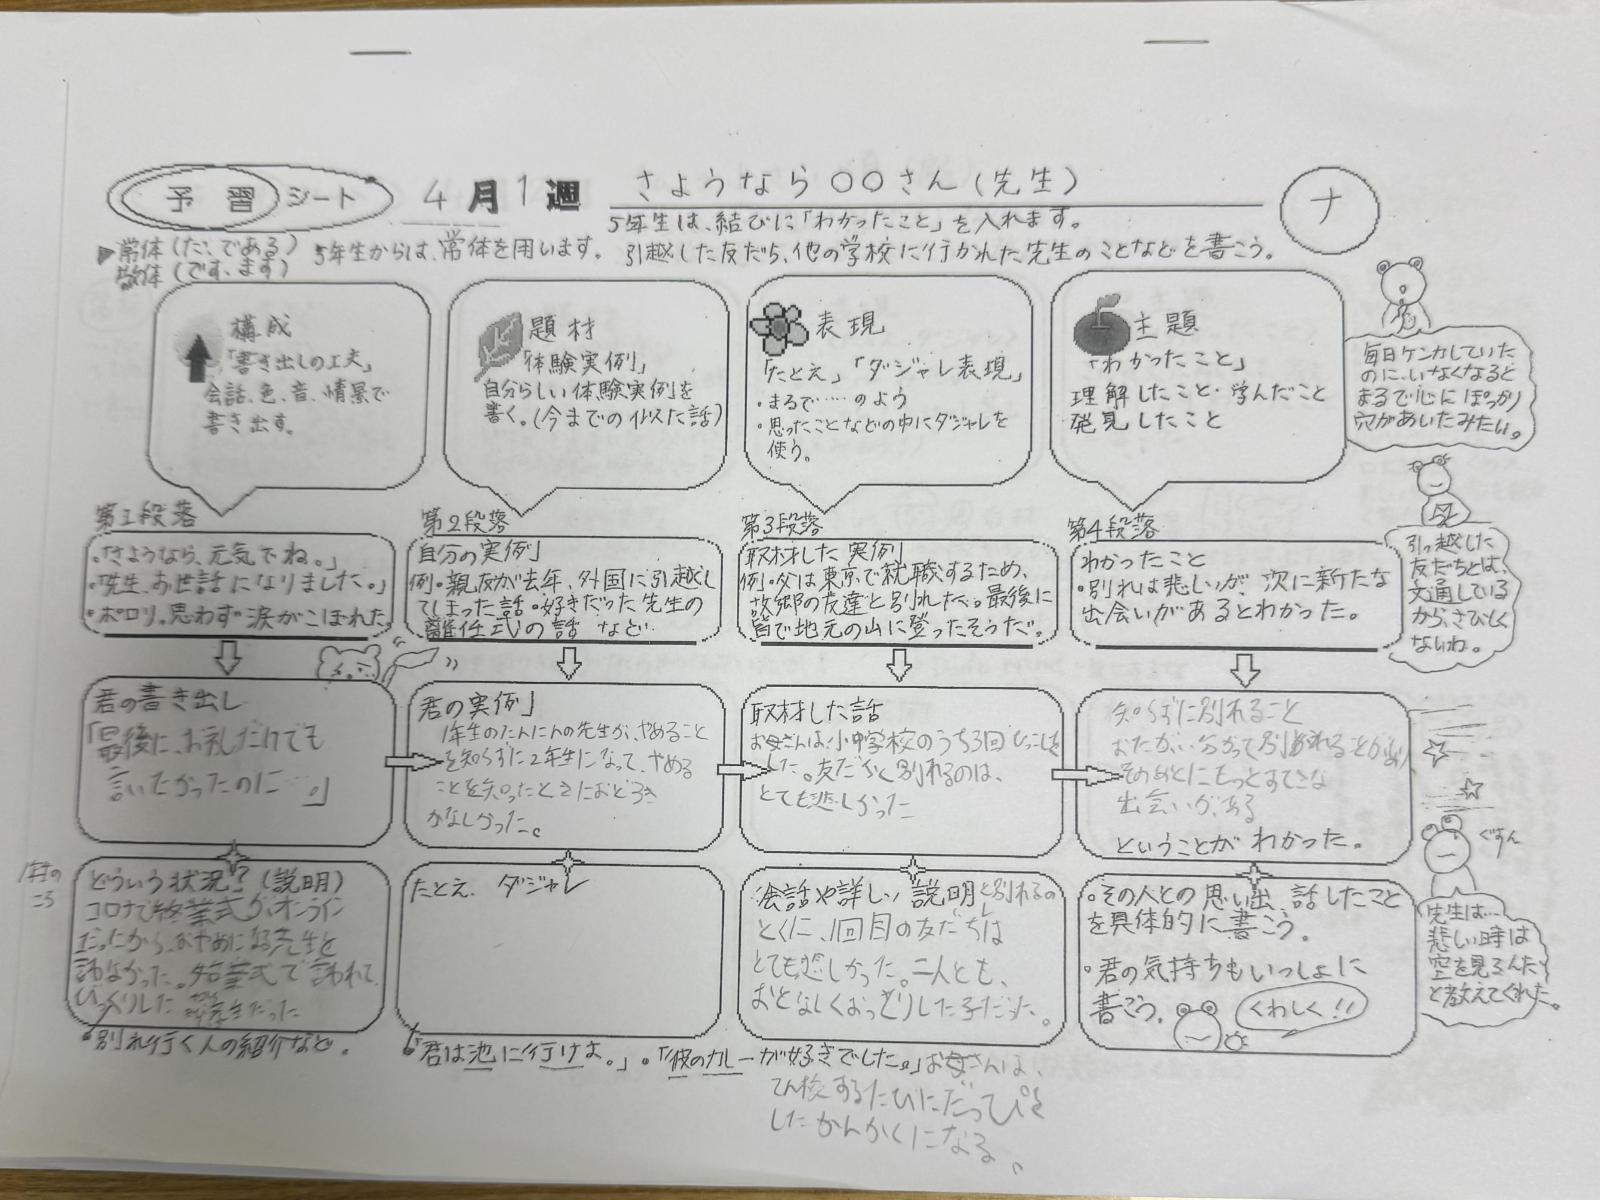 予習シート
4月1週
さようなら○○さん(先生)
ナ
5年生は、結びに「わかったこと」を入れます。
▶常体(だ、である) 5年生からは、常体を用います。 引越した友だち、他の学校に行かれた先生のことなどを書こう。
敬体(です、ます)
構成
「書き出しの工夫」
会話、色、音、情景で
書き出す。
題材
「体験実例」
自分らしい体験実例を
書く。(今までの似た話)
表現
「たとえ」「ダジャレ表現」
・まるで……のよう
・思ったことなどの中にダジャレを
使う。
主題
「わかったこと」
理解したこと・学んだこと
発見したこと
毎日ケンカしていた
のに、いなくなると
まるで心にぽっかり
穴があいたみたい。
第1段落
・「さようなら、元気でね。」
・「先生、お世話になりました。」
・ポロリ。思わず涙がこぼれた
第2段落
自分の実例」
例・親友が去年、外国に引越し
てしまった話。・好きだった先生の
離任式の話 など…
第3段落
取材した実例」
例・父は東京で就職するため、
故郷の友達と別れた。最後に
皆で地元の山に登ったそうだ。
第4段落
わかったこと
・別れは悲しいが、次に新たな
出会いがあるとわかった。
引っ越した
友だちとは、
文通している
から、さびしく
ないわ。
君の書き出し
「最後に、お礼だけでも
言いたかったのに…。」
君の実例」
1年生のたんにんの先生が、やめること
を知らずに2年生になって、やめる
ことを知ったときにおどろき
かなしかった。
取材した話
お母さんは、小中学校のうち3回ひっこしを
した。友だちと別れるのは、
とても悲しかった
知らずに別れること
おたがい分かって別れることがあり
そのあとにもっとすてきな
出会いがある
ということが わかった。
ぐすん
1年の
ころ
どういう状況?(説明)
コロナで終業式がオンライン
だったから、おやめになる先生と
言わなかった。始業式で言われて
びっくりした
好きだった
・別れ行く人の紹介など。
たとえ、ダジャレ
・「君は池に行けよ。」・「彼のカレーが好きでした。」
会話や詳しい説明 と別れるの
とくに、1回目の友だちは
とても悲しかった。二人とも、
おとなしくおっとりした子だった。
お母さんは、
てん校するたびにだっぴを
したかんかくになる。
・その人との思い出、話したこと
を具体的に書こう。
・君の気持ちもいっしょに
書こう。
くわしく!!
先生は…
悲しい時は
空を見るんだ
と教えてくれた。